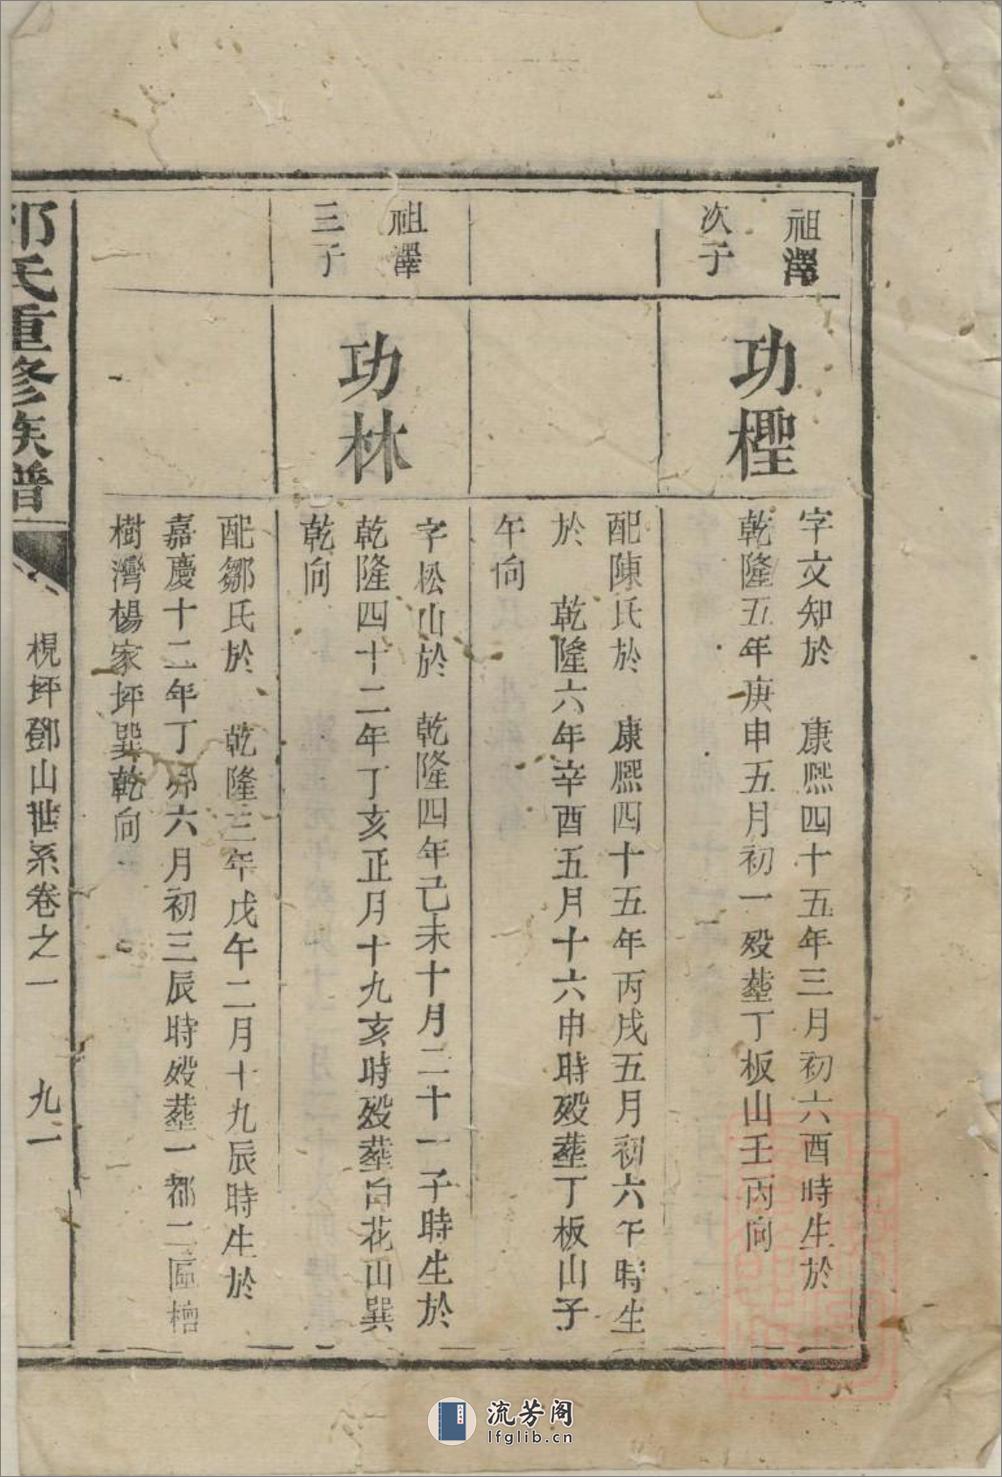 祖澤
次子
功檉
字文知於 康熙四十五年三月初六酉時生於
乾隆五年庚申五月初一歿塟丁板山壬丙向
配陳氏於 康熙四十五年丙戌五月初六午時生
於 乾隆六年辛酉五月十六申時歿塟丁板山子
午向
祖澤
三子
功林
字松山於 乾隆四年己未十月二十一子時生於
乾隆四十二年丁亥正月十九亥時歿塟白花山巽
乾向
配鄒氏於 乾隆三年戊午二月十九辰時生於
嘉慶十二年丁卯六月初三辰時歿塟一都二區檜
樹灣楊家坪巽乾向
氏重修族譜
梘坪鄧山世系卷之一 九一
流芳阁
lfglib.cn